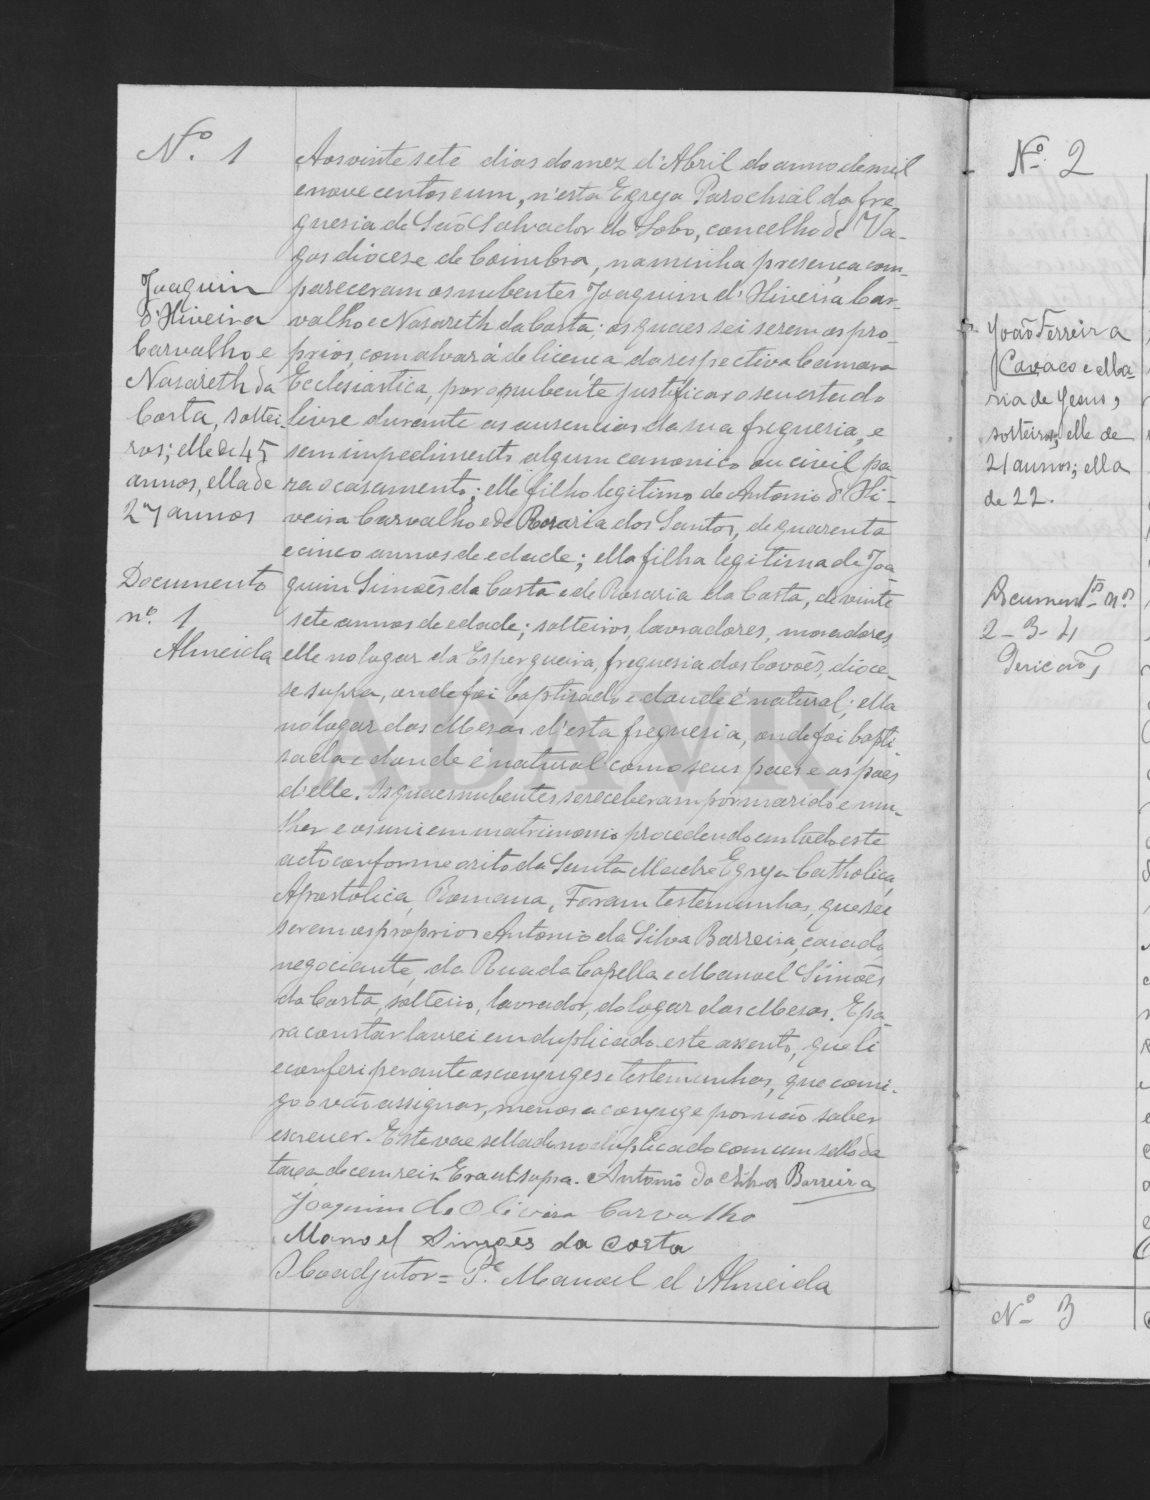 Nº. 1
Joaquim
d'Oliveira
Carvalho e
Nasareth da
Costa, soltei
ros; elle de 45
annos, ella de
27 annos
Documento
nº. 1
Almeida
Aos vinte sete dias do mez d'Abril do anno de mil
e nove centos e um, n'esta Egreja Parochial da fre
guesia de São Salvador do Sobo, concelho de Va-
gos diocese de Coimbra, na minha presença com-
pareceram os nubentes Joaquim d'Oliveira Car-
valho e Nasareth da Costa; os quaes sei serem os pro-
prios, com alvará de licença da respectiva Camara
Ecclesiastica, por o nubente justificar o seu estado
livre durante as ausencias da sua freguesia, e
sem impedimento algum canonico ou civil pa
ra o casamento; elle filho legitimo de Antonio d'Oli-
veira Carvalho e de Rosaria dos Santos, de quarenta
e cinco annos de edade; ella filha legitima de Joa
quim Simões da Costa e de Rosaria da Costa, de vinte
sete annos de edade; solteiros, lavradores, moradores,
elle no lugar da Espergueira, freguesia dos Covões, dioce-
se supra, onde foi baptisado e donde é natural; ella
no logar das Mesas d'esta freguesia, onde foi bapti-
sada e donde é natural como seus paes e os paes
d'elle. Os quaes nubentes se receberam por marido e mu-
lher e os uni em matrimonio procedendo em tudo este
acto conforme o rito da Santa Madre Egreja Catholica,
Apostolica, Romana. Foram testemunhas, que sei
serem os proprios Antonio da Silva Barreira, casado,
negociante, da Rua da Capella e Manoel Simões
da Costa, solteiro, lavrador, do logar das Mesas. E pa-
ra constar lavrei em duplicado este assento, que li
e conferi perante os conjuges e testemunhas, que comi-
go o vão assignar, menos a conjuge por não saber
escrever. Este vae sellado no duplicado com um sello da
taxa de cem reis. Era ut supra. Antonio da Silva Barreira
Joaquim de Oliveira Carvalho
Manoel Simões da Costa
O Coadjutor = Pe. Manoel d'Almeida
ADAVR
Nº. 2
João Ferreira
Cavaco e Ma-
ria de Jesus,
solteiros, elle de
21 annos; ella
de 22.
Documentos nos
2-3-4
Nº 3